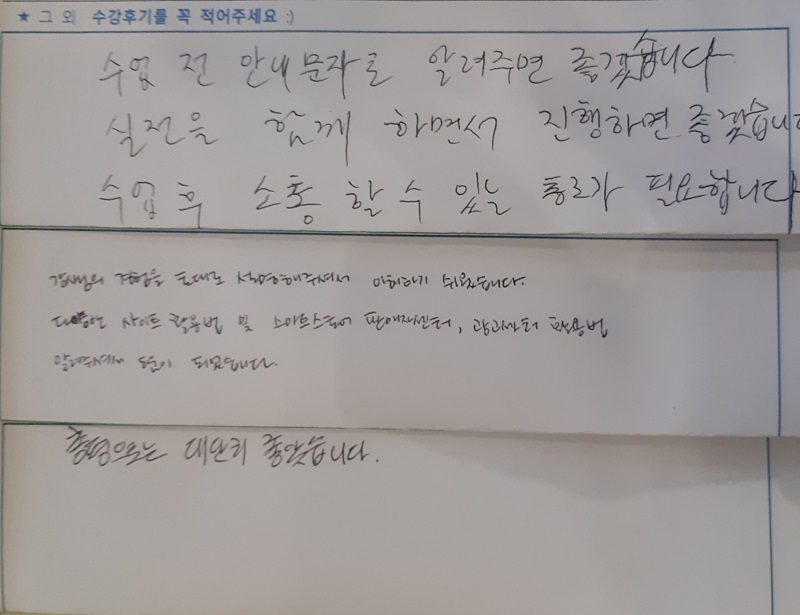 ★ 그 외 수강후기를 꼭 적어주세요 :)
수업 전 안내문자로 알려주면 좋겠습니다
실전을 함께 하면서 진행하면 좋겠습니다
수업 후 소통 할 수 있는 통로가 필요합니다
강사님의 경험을 토대로 설명해주셔서 이해하기 쉬웠습니다.
다양한 사이트 활용법 및 스마트스토어 판매자센터, 광고센터 활용법
알려주셔서 도움이 되었습니다.
대단히 좋았습니다.